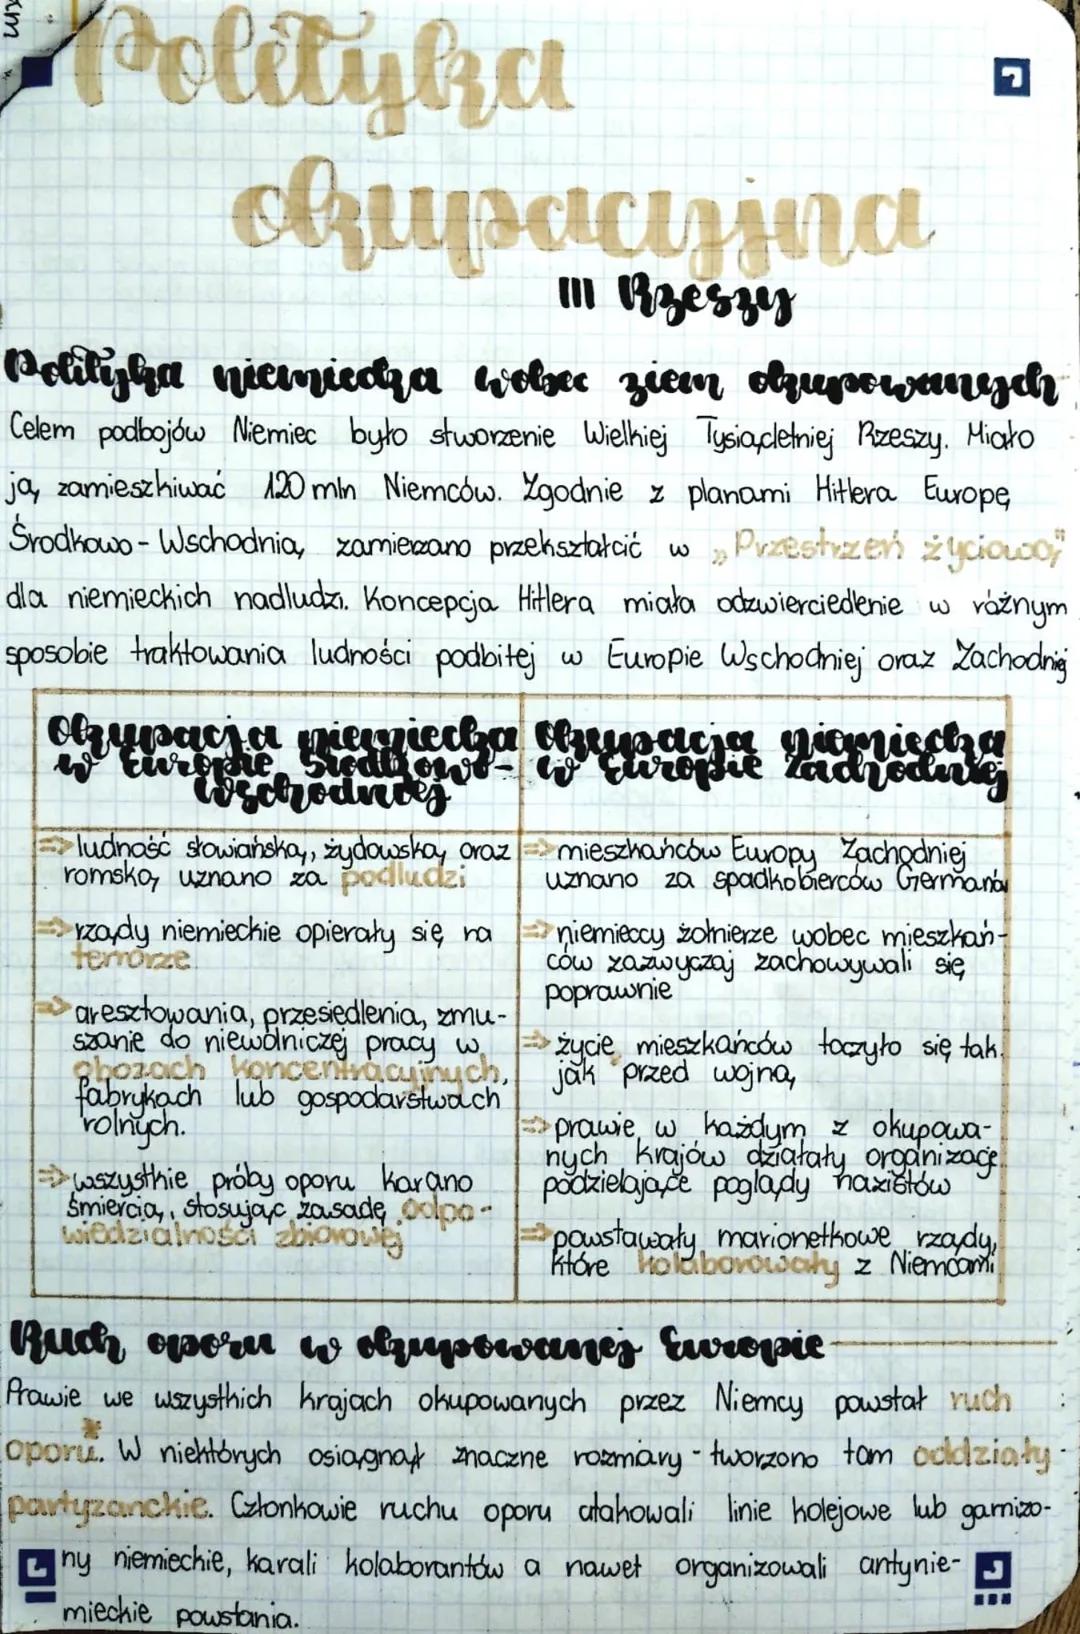 Polityka
okupacyjna
III Rzeszy
Polityka niemiecka wobec ziem okupowanych
Celem podbojów Niemiec było stworzenie Wielkiej Tysiącletniej Rzeszy. Miało
ją zamieszkiwać 120 mln Niemców. Zgodnie z planami Hitlera Europę
Środkowo-Wschodnią zamierzano przekształcić w „Przestrzeń życiową"
dla niemieckich nadludzi. Koncepcja Hitlera miała odzwierciedlenie w różnym
sposobie traktowania ludności podbitej w Europie Wschodniej oraz Zachodniej
Okupacja niemiecka
w Europie Środkowo-
Wschodniej
⇒ ludność słowiańską, żydowską oraz
romską uznano za podludzi
⇒ rządy niemieckie opierały się na
terrorze
⇒ aresztowania, przesiedlenia, zmu-
szanie do niewolniczej pracy w
obozach koncentracyjnych,
fabrykach lub gospodarstwach
rolnych.
⇒ wszystkie próby oporu karano
śmiercią, stosując zasadę odpo-
wiedzialności zbiorowej
Okupacja niemiecka
w Europie Zachodniej
⇒ mieszkańców Europy Zachodniej
uznano za spadkobierców Germanów
⇒ niemieccy żołnierze wobec mieszkań-
ców zazwyczaj zachowywali się
poprawnie
⇒ życie mieszkańców toczyło się tak
jak przed wojną
⇒ prawie w każdym z okupowa-
nych krajów działały organizacje
podzielające poglądy nazistów
⇒ powstawały marionetkowe rządy,
które kolaborowały z Niemcami
Ruch oporu w okupowanej Europie
Prawie we wszystkich krajach okupowanych przez Niemcy powstał ruch
oporu.* W niektórych osiągnął znaczne rozmiary - tworzono tam oddziały
partyzanckie. Członkowie ruchu oporu atakowali linie kolejowe lub garnizo-
ny niemieckie, karali kolaborantów a nawet organizowali antynie-
mieckie powstania.